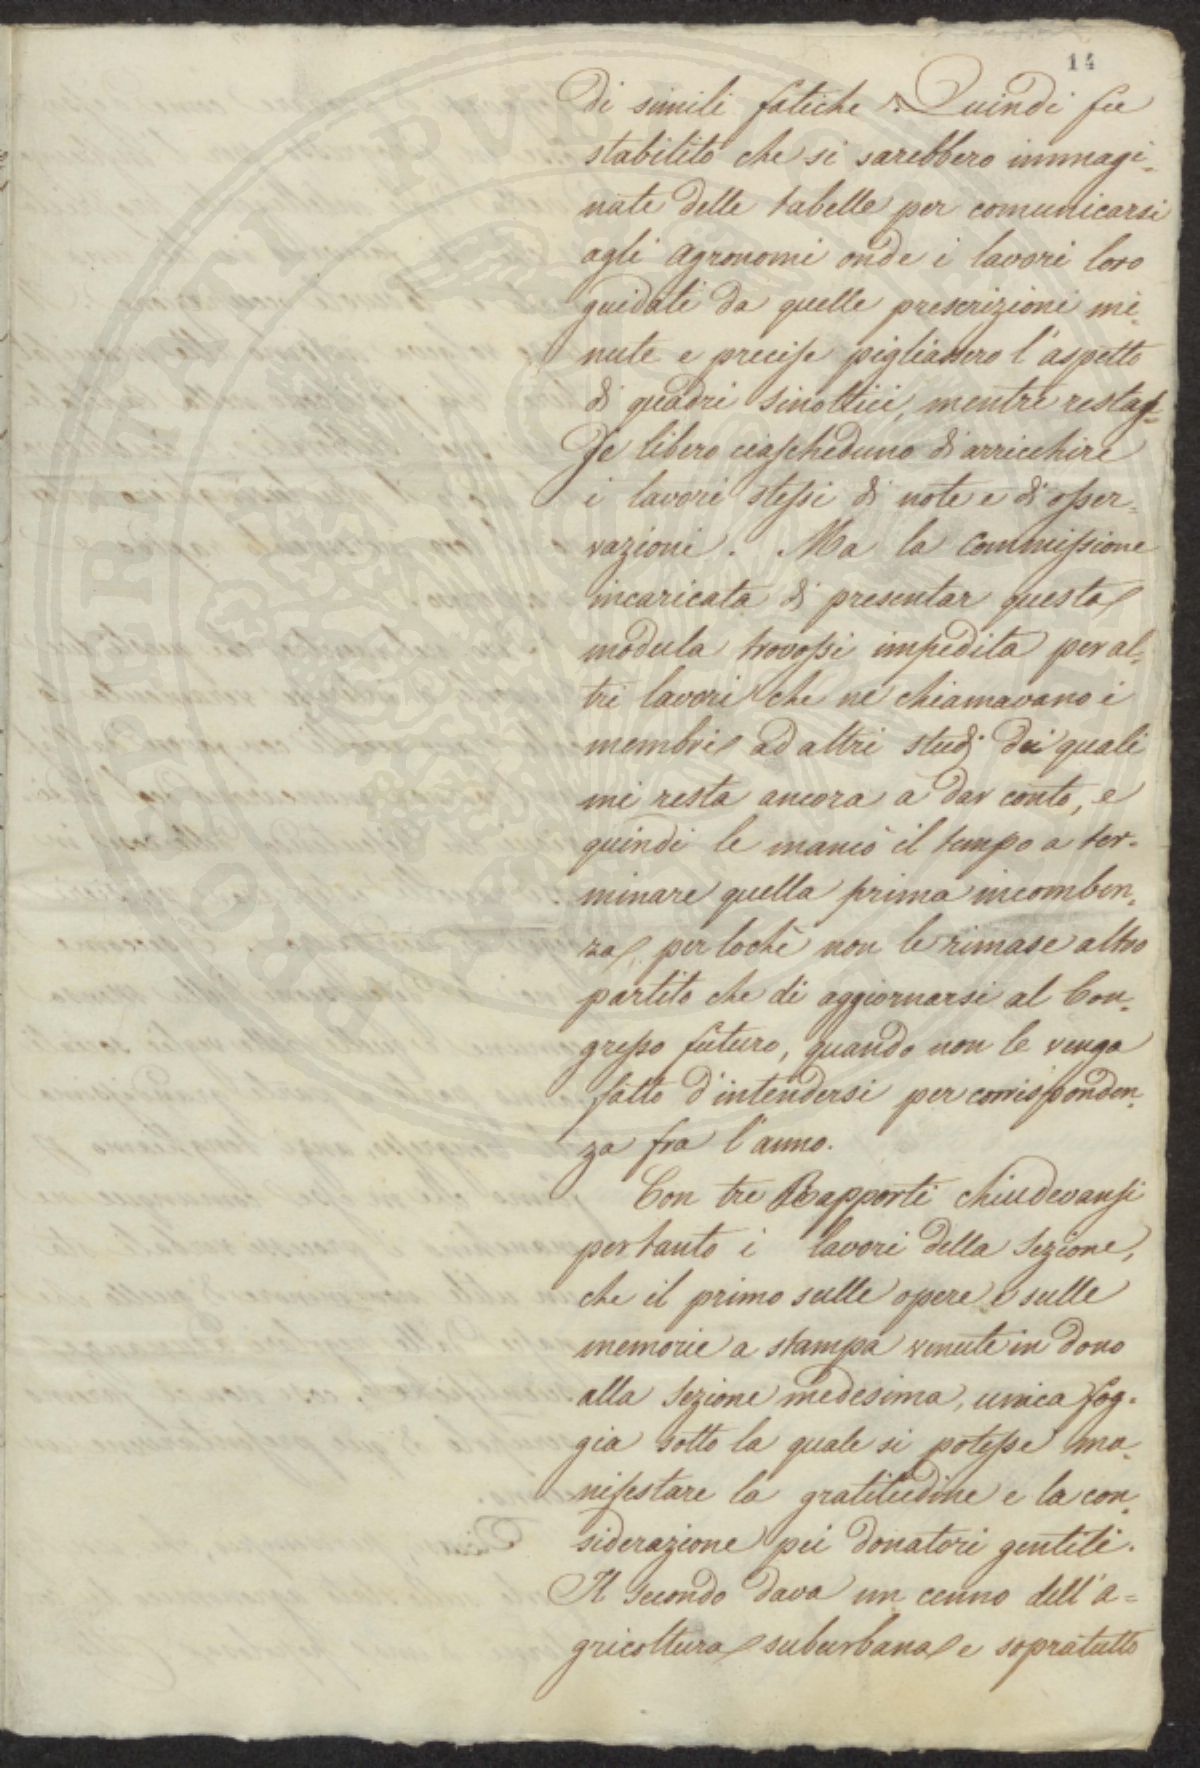 14
di simili fatiche. Quindi fu
stabilito che si sarebbero immagi-
nate delle tabelle per comunicarsi
agli agronomi onde i lavori loro
guidati da quelle prescrizioni mi-
nute e precise pigliassero l'aspetto
di quadri sinottici, mentre restas-
se libero ciascheduno di arricchire
i lavori stessi di note e di osser-
vazioni. Ma la Commissione
incaricata di presentar questa
modula trovossi impedita per al-
tri lavori che ne chiamavano i
membri ad altri studj dei quali
mi resta ancora a dar conto, e
quindi le mancò il tempo a ter-
minare quella prima incomben-
za, per lochè non le rimase altro
partito che di aggiornarsi al Con-
gresso futuro, quando non le venga
fatto d'intendersi per corrisponden-
za fra l'anno.
Con tre Rapporti chiudevansi
pertanto i lavori della Sezione,
che il primo sulle opere e sulle
memorie a stampa venute in dono
alla Sezione medesima, unica fog-
gia sotto la quale si potesse ma-
nifestare la gratitudine e la con-
siderazione pei donatori gentili.
Il secondo dava un cenno dell'a-
gricoltura suburbana e sopratutto